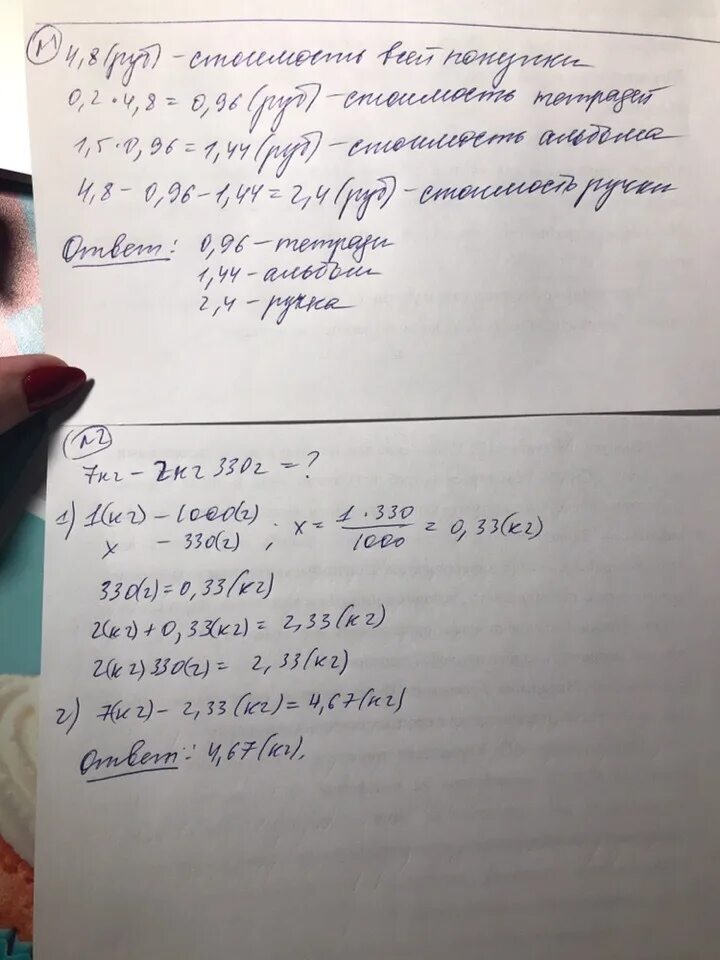 №1
4,8 (руб) - стоимость всей покупки
0,2 · 4,8 = 0,96 (руб) - стоимость тетрадей
1,5 · 0,96 = 1,44 (руб) - стоимость альбома
4,8 - 0,96 - 1,44 = 2,4 (руб) - стоимость ручки
Ответ: 0,96 - тетради
1,44 - альбом
2,4 - ручка
№2
7кг - 2кг 330г = ?
1) 1(кг) - 1000(г)
х - 330(г) ; х = 1 · 330 / 1000 = 0,33(кг)
330(г) = 0,33(кг)
2(кг) + 0,33(кг) = 2,33(кг)
2(кг) 330(г) = 2,33(кг)
2) 7(кг) - 2,33(кг) = 4,67(кг)
Ответ: 4,67(кг).